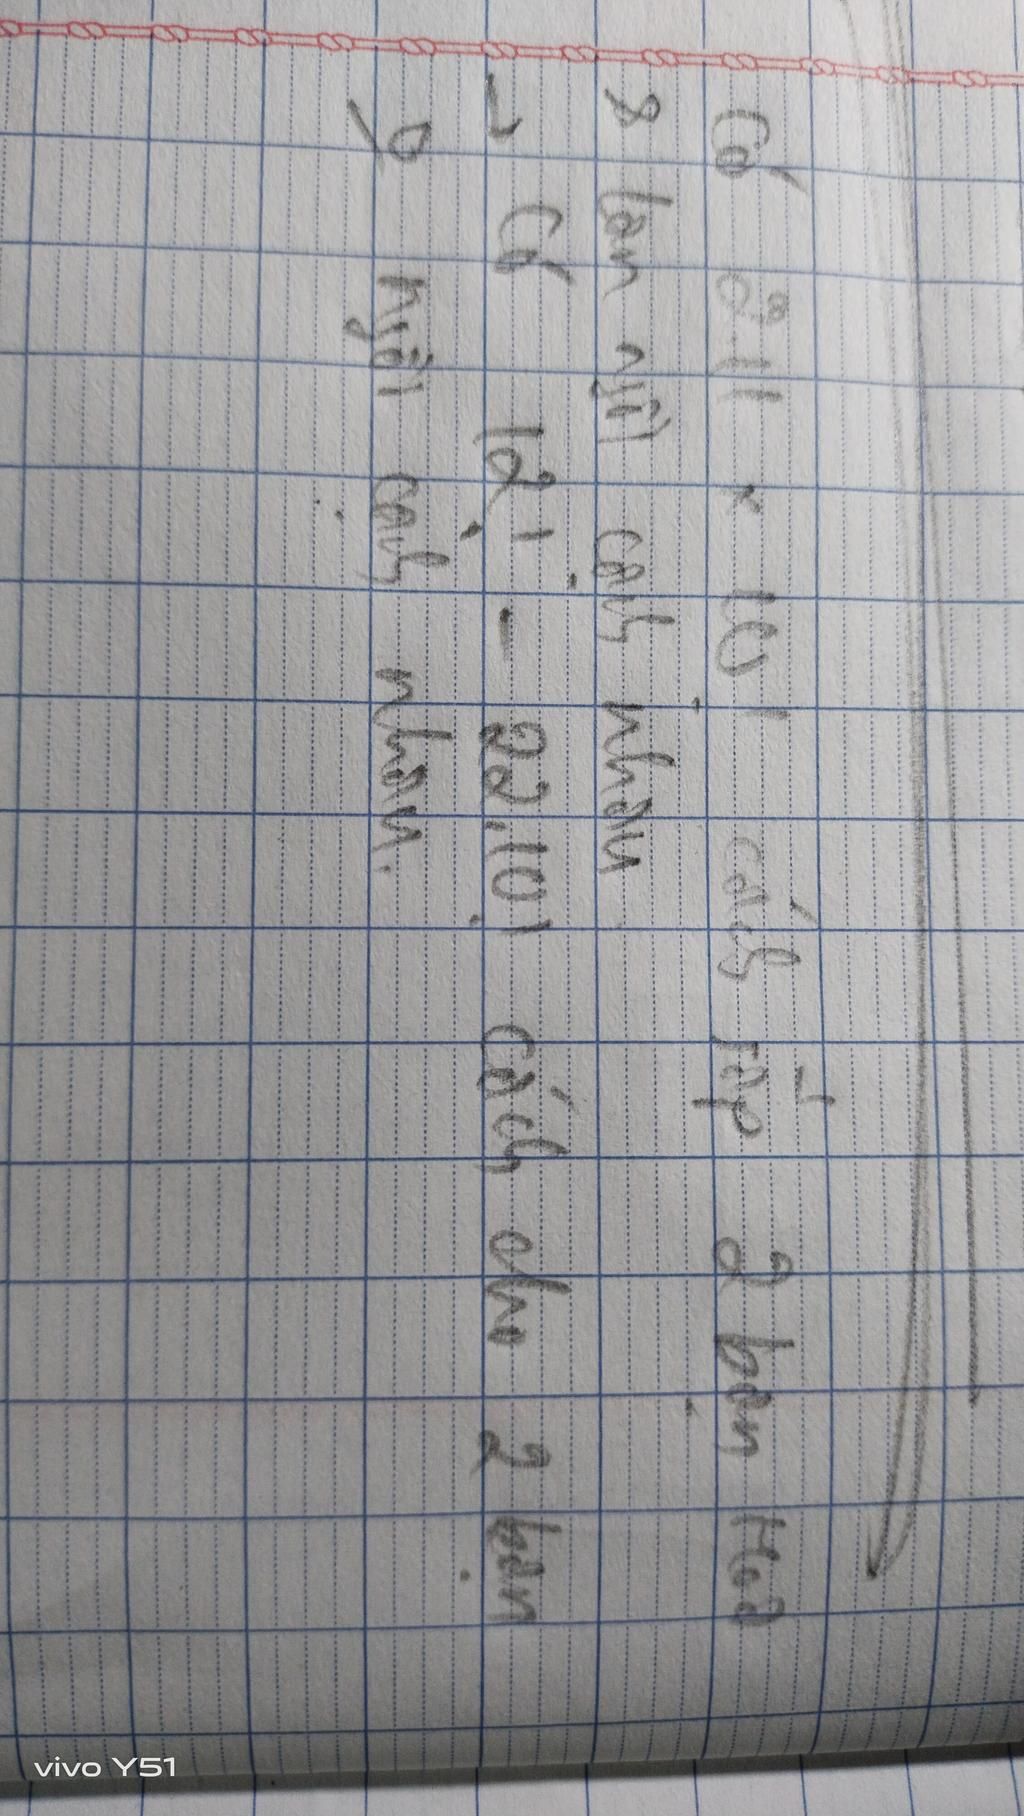 Có 2.11 x 10! cách sắp 2 bạn Hoa
& Lan ngồi cạnh nhau
→ Có 12! - 22.10! cách cho 2 bạn
ko ngồi cạnh nhau.
vivo Y51